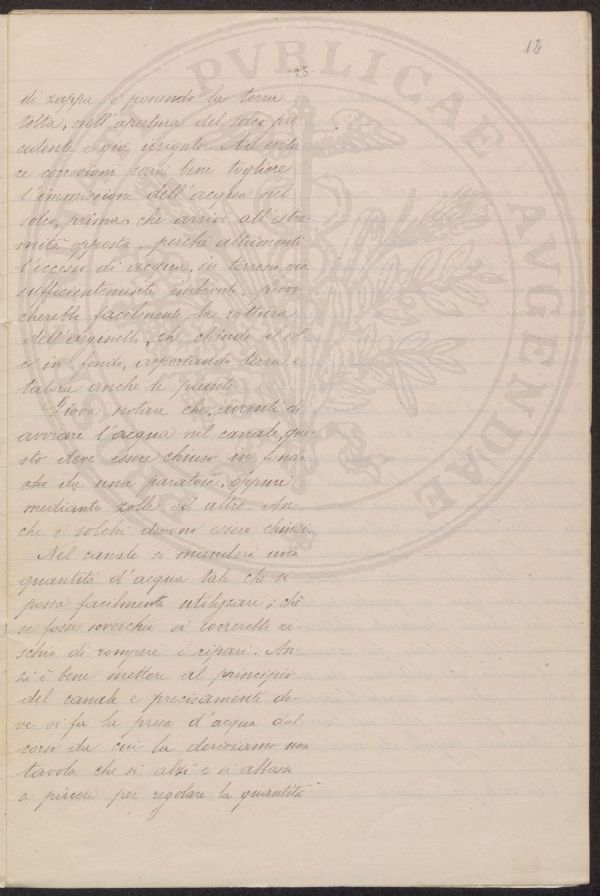 12
-25-
di zappa e ponendo la terra
tolta, nell'apertura del solco pre
cedente e già irrigato. Ad evita
re corrosioni sarà bene togliere
l'immissione dell'acqua nel
solco, prima che arrivi all'estre
mità opposta, perchè altrimenti
l'eccesso di acqua, in terreno già
sufficientemente imbevuto, provo
cherebbe facilmente la rottura
dell'arginello, che chiude il sol
co in fondo, asportando terra e
talora anche le piante.
Giova notare che, avanti di
avviare l'acqua nel canale, que-
sto deve essere chiuso in fondo
da una paratoia, oppure
mediante zolle od altro. An-
che i solchi devono essere chiusi.
Nel canale si manderà una
quantità d'acqua tale che si
possa facilmente utilizzare; chè
se fosse soverchia si correrebbe ri-
schio di rompere i ripari. An-
zi è bene mettere al principio
del canale e precisamente do-
ve si fa la presa d'acqua dal
corso da cui la deriviamo una
tavola che si alzi e si abbassi
a piacere per regolare la quantità
PVBLICAE
AVGENDAE